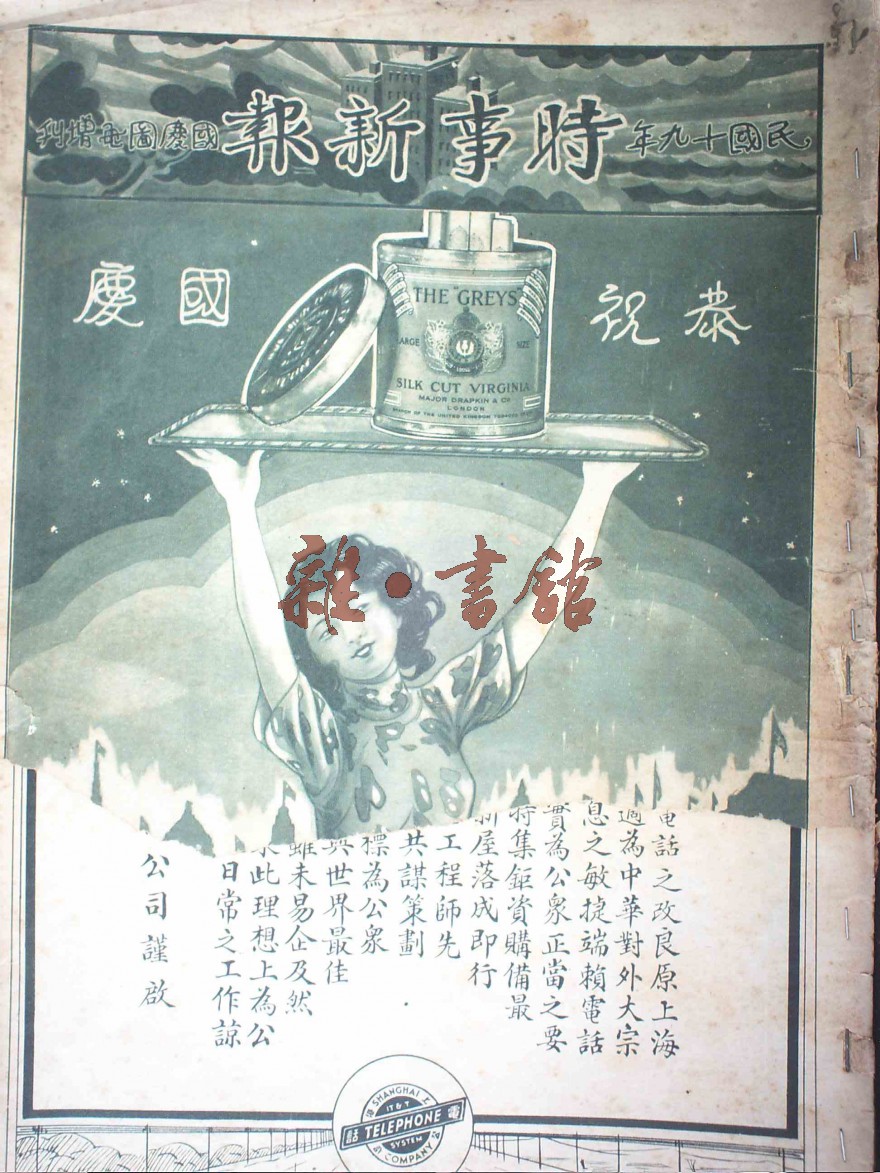 民國十九年
時事新報
國慶圖畫增刊
恭祝
國慶
THE "GREYS"
LARGE SIZE
SILK CUT VIRGINIA
MAJOR DRAPKIN & CO
LONDON
BRANCH OF THE UNITED KINGDOM TOBACCO
雜·書館
電話之改良原上海
適為中華對外大宗
息之敏捷端賴電話
實為公衆正當之要
特集鉅資購備最
新屋落成即行
工程師先
共謀策劃
標為公衆
與世界最佳
雖未易企及然
此理想上為公
日常之工作諒
公司謹啟
SHANGHAI
上海
IT & T
電話
TELEPHONE
SYSTEM
公司
COMPANY